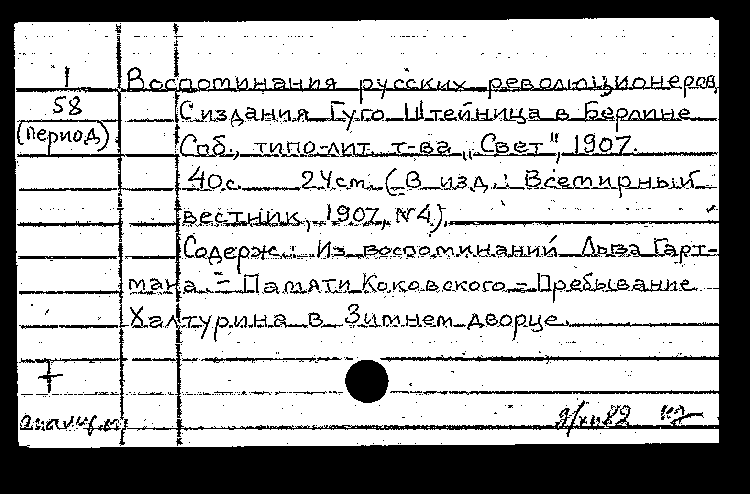 1 Воспоминания русских революционеров.
58 С издания Гуго Штейница в Берлине
(период) Спб., типо-лит. т-ва „Свет", 1907.
40с. 24см. (В изд.: Всемирный
вестник, 1907, №4).
Содерж.: Из воспоминаний Льва Гарт-
мана. = Памяти Коковского = Пребывание
Халтурина в Зимнем дворце.
9/XII 82